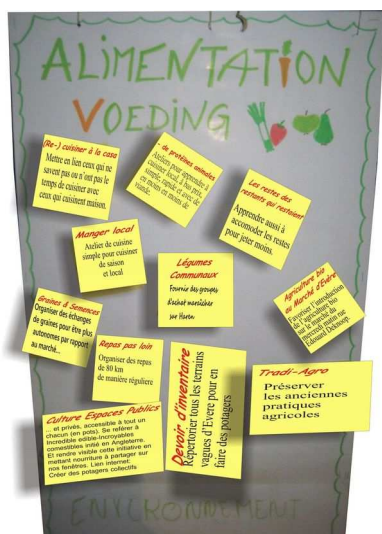 ALIMENTATION
VOEDING
(Re-) cuisiner à la casa
Mettre en lien ceux qui ne
savent pas ou n'ont pas le
temps de cuisiner avec
ceux qui cuisinent maison.
- de protéines animales
Ateliers pour apprendre à
cuisiner local, à bas prix,
simple, rapide et avec de
en moins en moins de
viande.
Les restes des
restants qui restaient
Apprendre aussi à
accomoder les restes
pour jeter moins.
Manger local
Atelier de cuisine
simple pour cuisiner
de saison
et local
Légumes
Communaux
Fournir des groupes
d'achat maraîcher
sur Haren
Agriculture bio
au Marché d'Evere
Favoriser l'introduction
de l'agriculture bio
sur le marché du
mercredi matin rue
Edouard Deknoop.
Graines & Semences
Organiser des échanges
de graines pour être plus
autonomes par rapport
au marché...
Repas pas loin
Organiser des repas
de 80 km
de manière régulière
Devoir d'inventaire
Répertorier tous les terrains
vagues d'Evere pour en
faire des potagers
Tradi-Agro
Préserver
les anciennes
pratiques
agricoles
Culture Espaces Publics
... et privés, accessible à tout un
chacun (en pots). Se référer à
Incredible edible-Incroyables
comestibles initié en Angleterre.
Et rendre visible cette initiative en
mettant nourriture à partager sur
nos fenêtres. Lien internet:
Créer des potagers collectifs
ENVIRONNEMENT